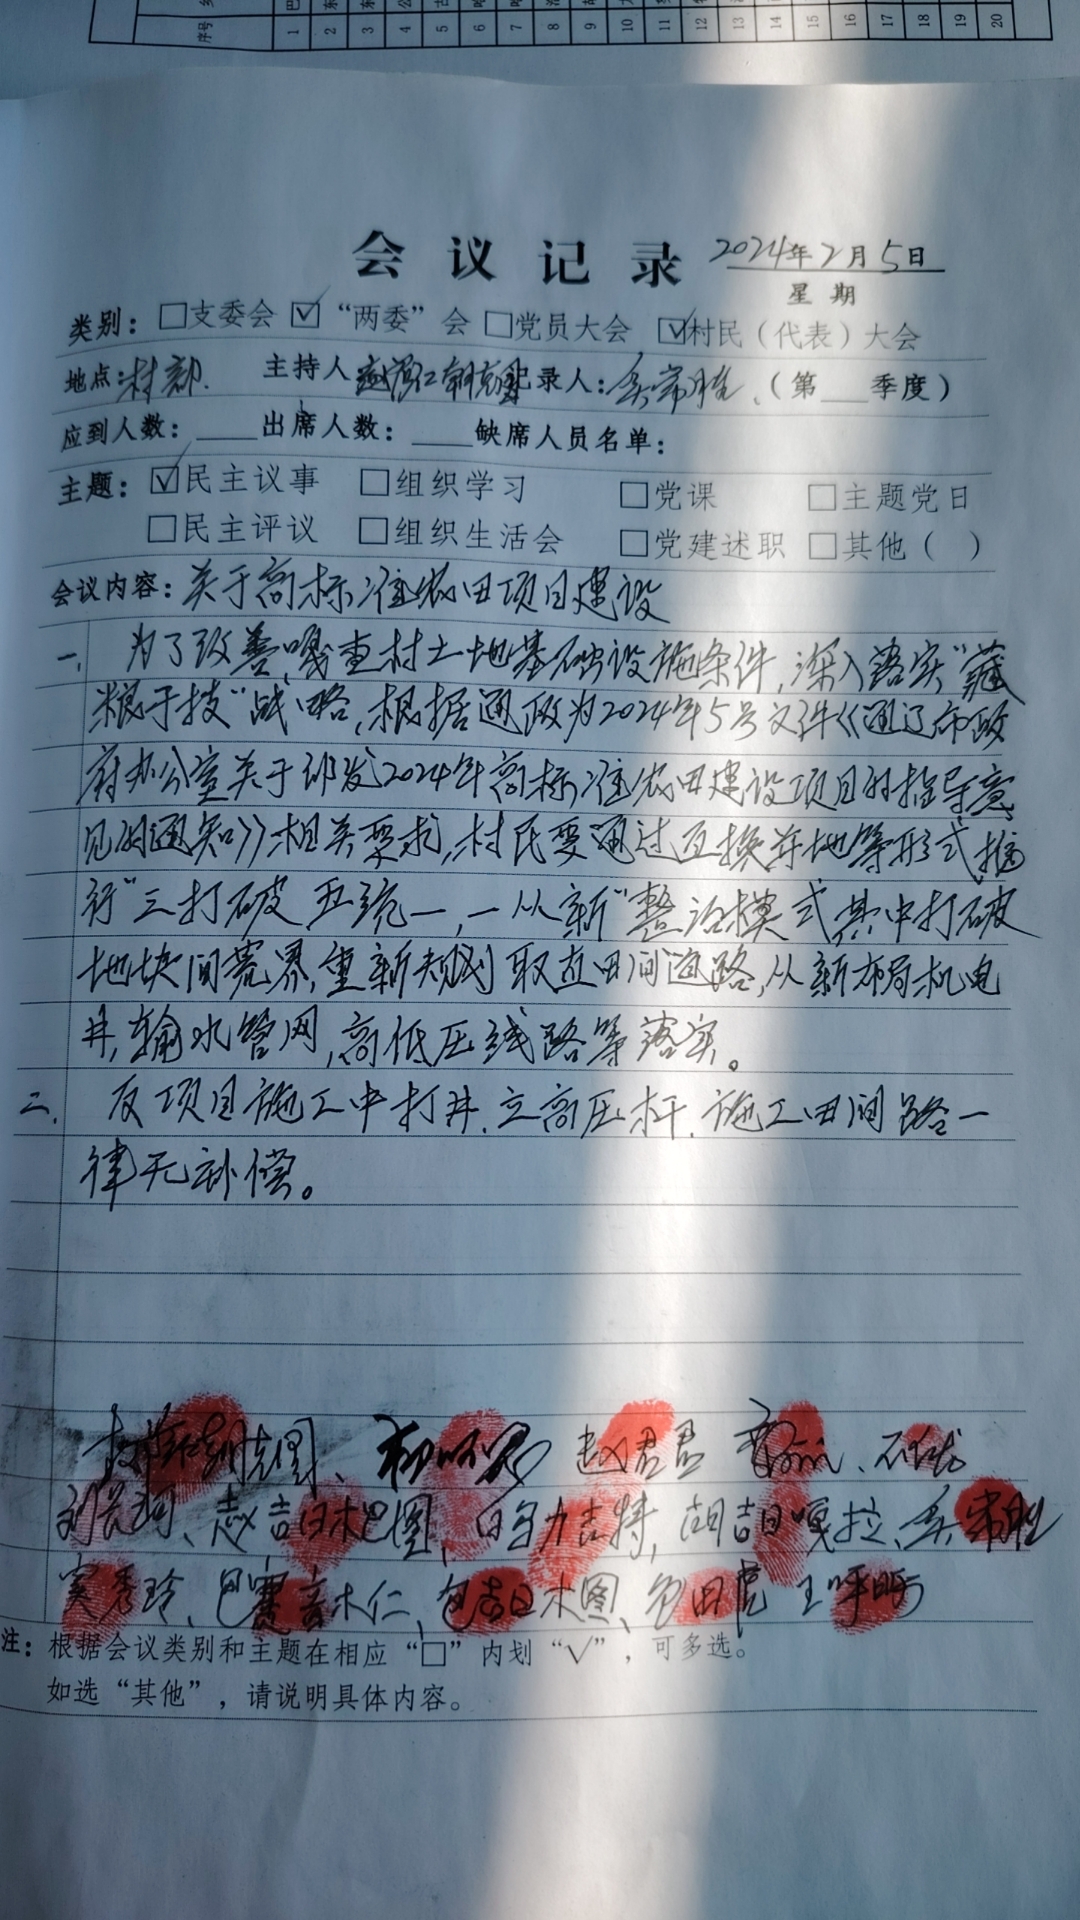 序号 1 2 3 4 5 6 7 8 9 10 11 12 13 14 15 16 17 18 19 20
会议记录 2024年2月5日
星期
类别：□支委会 ☑“两委”会 □党员大会 ☑村民（代表）大会
地点：村部. 主持人 记录人： （第 季度）
应到人数： 出席人数： 缺席人员名单：
主题：☑民主议事 □组织学习 □党课 □主题党日
□民主评议 □组织生活会 □党建述职 □其他（ ）
会议内容：关于高标准农田项目建设
一、为了改善嘎查村土地基础设施条件，深入落实“藏
粮于技”战略，根据通政办2024年5号文件《通辽市政
府办公室关于印发2024年高标准农田建设项目的指导意
见的通知》相关要求，村民要通过互换并地等形式，推
行“三打破五统一，一从新”整治模式，其中打破
地块间 界，重新规划 取直田间道路，从新布局机电
井，输水管网，高低压线路等落实。
二、反项目施工中打井、立高压杆、施工田间路一
律无补偿。
朝克图、 赵君君
、 吉日木巴图、白乌力吉特，胡吉日嘎拉、 常胜
窦秀玲、巴塞音木仁、包吉日木图、包田虎 王呼
注：根据会议类别和主题在相应“□”内划“√”，可多选。
如选“其他”，请说明具体内容。